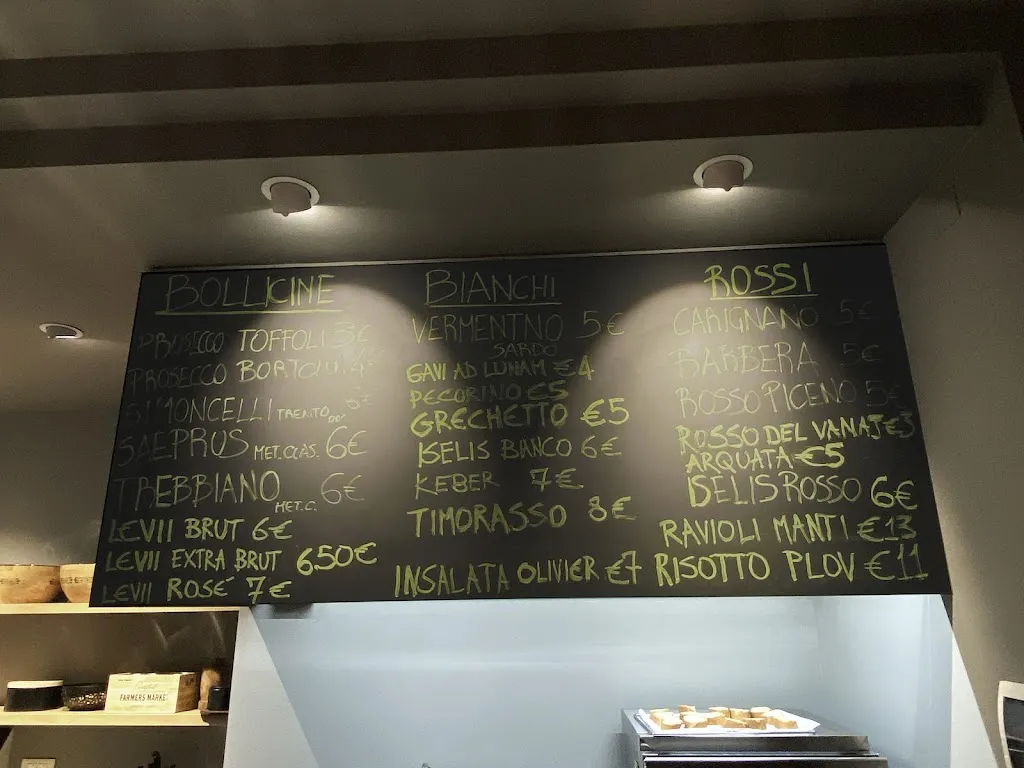 BOLLICINE
PROSECCO TOFFOLI 3€
PROSECCO BORTOLIN 4€
SIMONCELLI TRENTO DOC
SAEPRUS MET.CLAS. 6€
TREBBIANO 6€
MET.C.
LEVII BRUT 6€
LEVII EXTRA BRUT 650€
LEVII ROSÉ 7€
BIANCHI
VERMENTNO 5€
SARDO
GAVI AD LUNAM €4
PECORINO €5
GRECHETTO €5
ISELIS BIANCO 6€
KEBER 7€
TIMORASSO 8€
INSALATA OLIVIER €7
ROSSI
CARIGNANO 5€
BARBERA 5€
ROSSO PICENO 5€
ROSSO DEL VANAJ €3
ARQUATA €5
ISELIS ROSSO 6€
RAVIOLI MANTI €13
RISOTTO PLOV €11
FARMERS MARKET